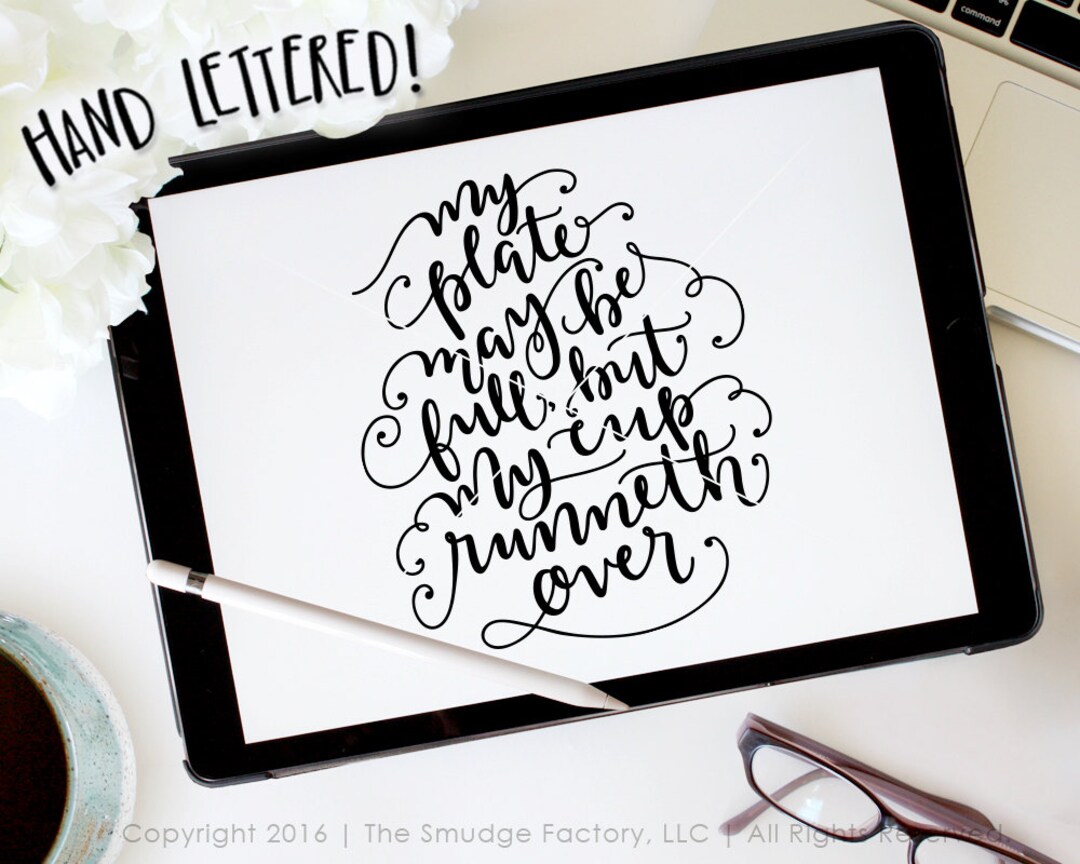 HAND LETTERED!
command
my
plate
may be
full, but
my cup
runneth
over
Copyright 2016 | The Smudge Factory, LLC | All Rights Reserved.